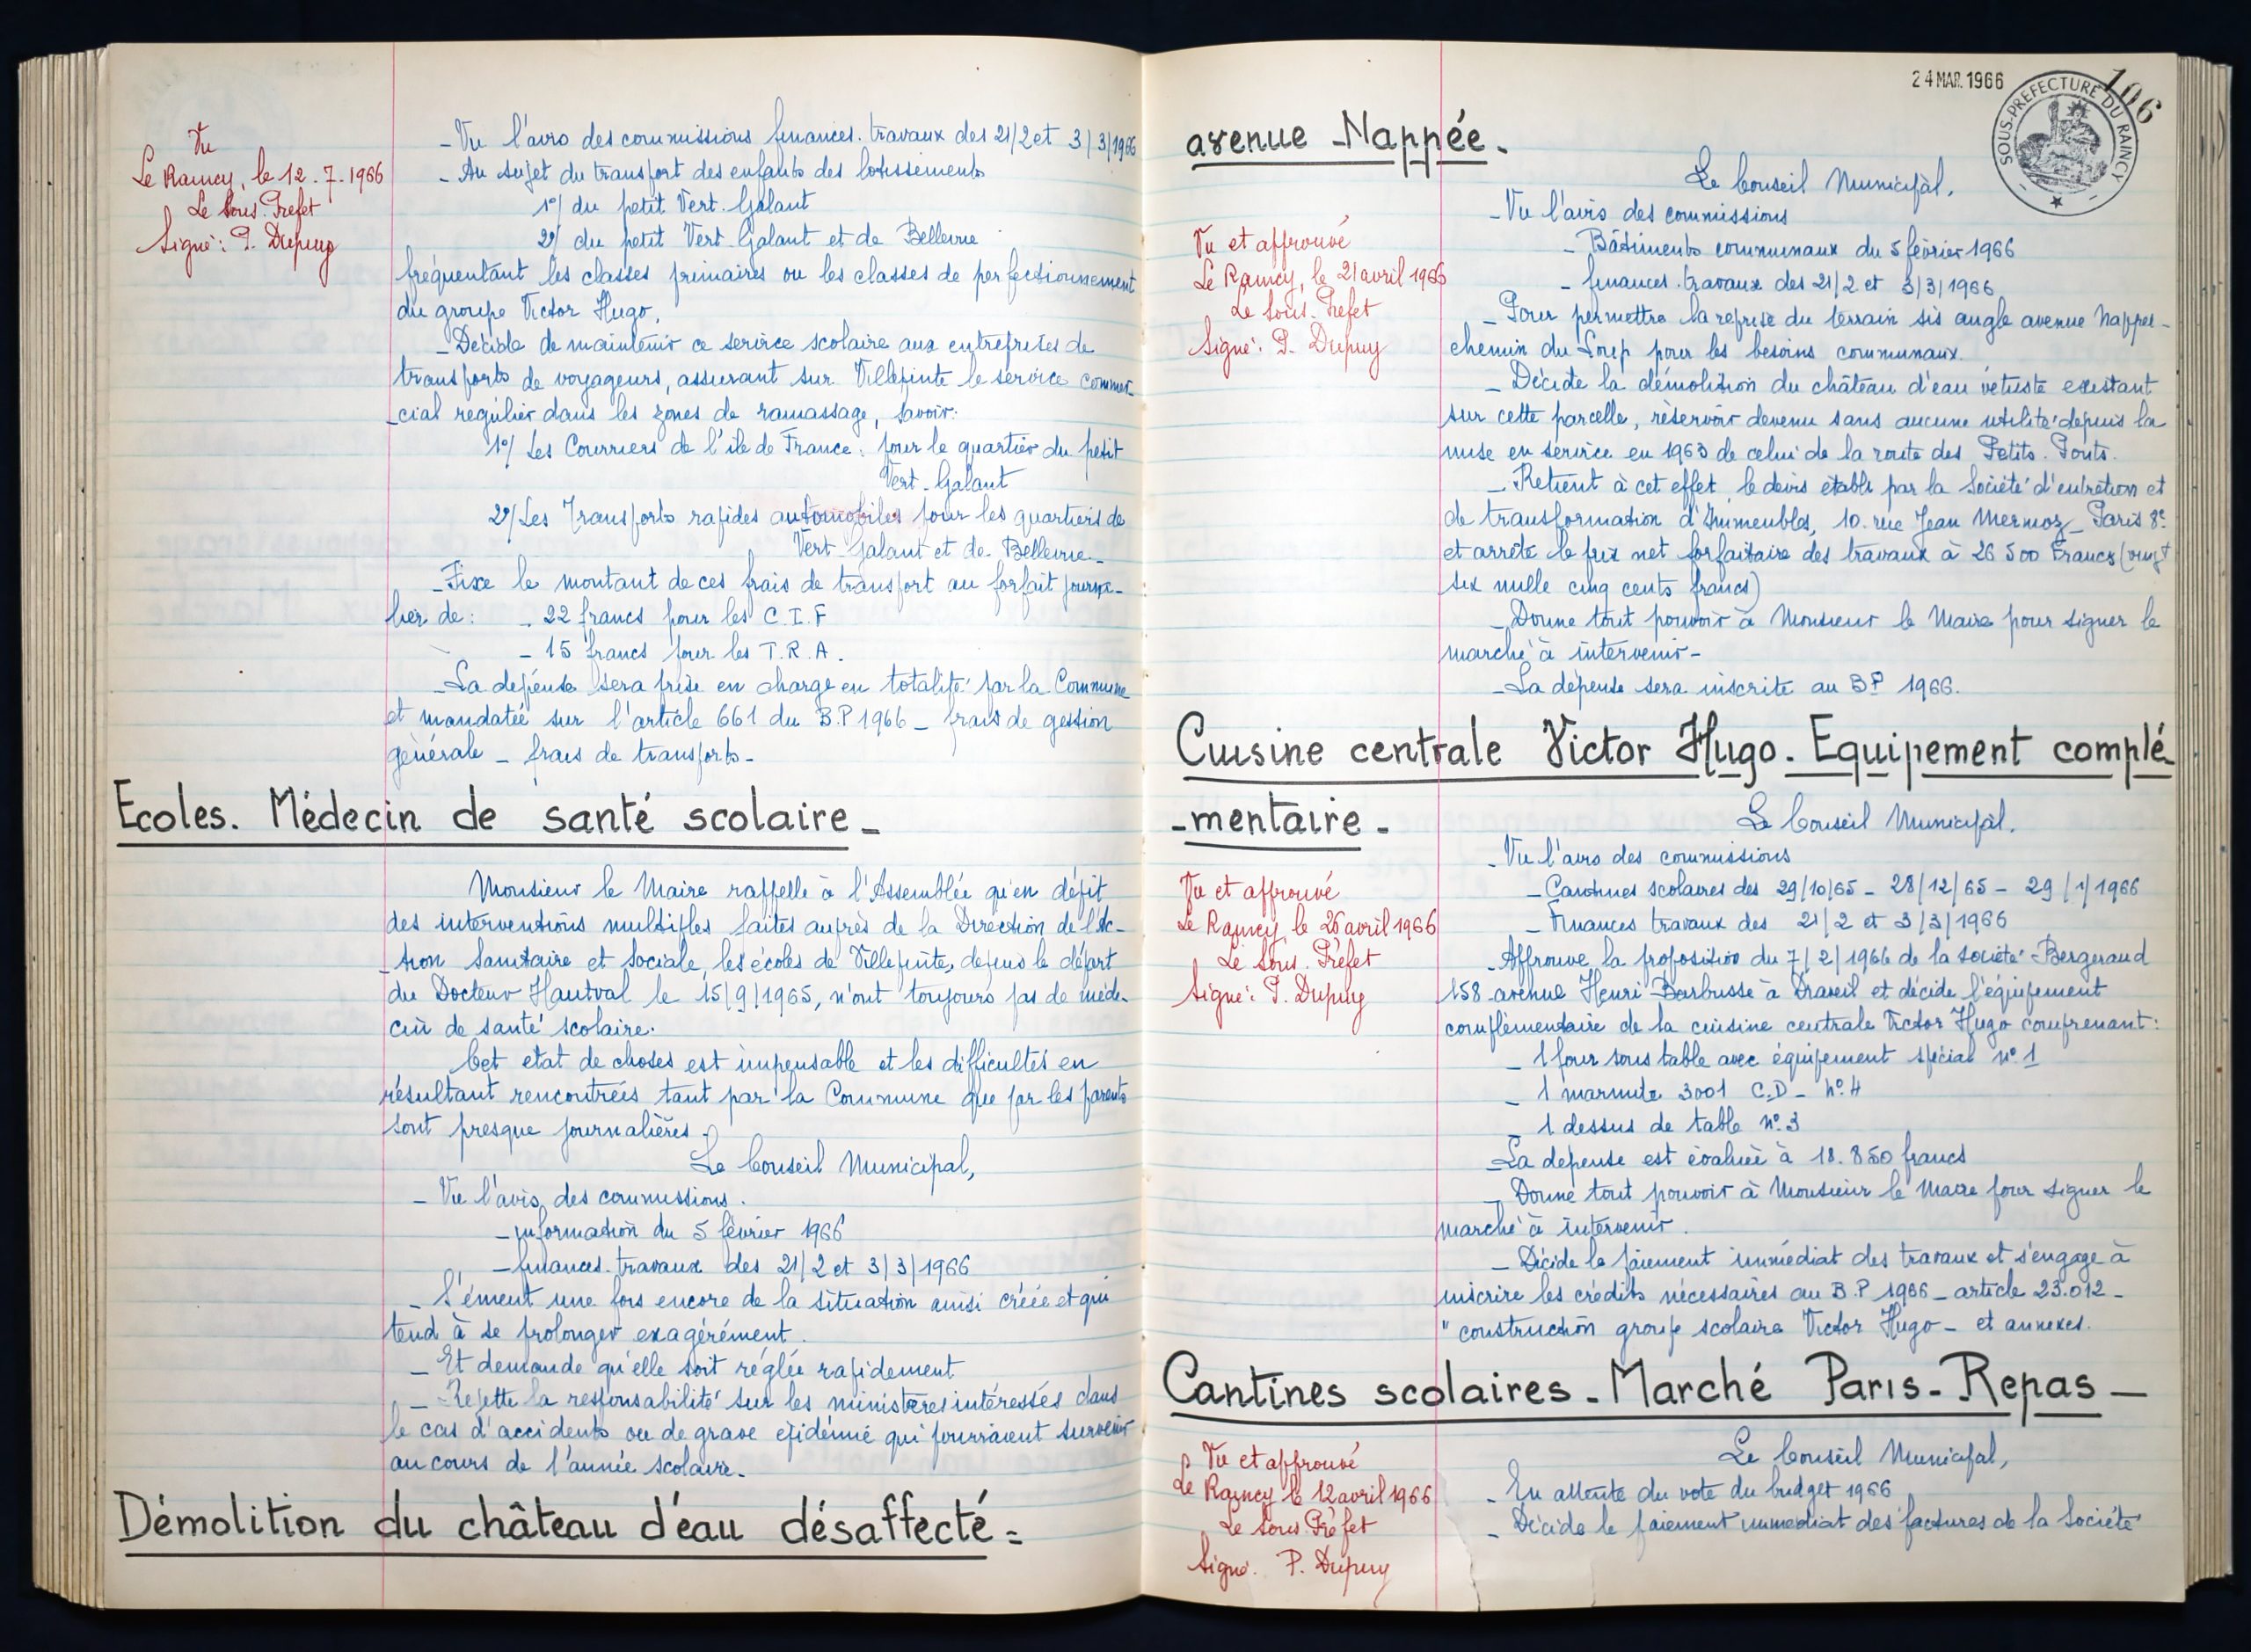 Vu
Le Raincy, le 12.7.1966
Le Sous-Préfet
Signé : P. Dupuy
- Vu l'avis des commissions finances. travaux des 21/2 et 3/3/1966
- Au sujet du transport des enfants des lotissements
1°/ du petit Vert-Galant
2°/ du petit Vert-Galant et de Bellevue
fréquentant les classes primaires ou les classes de perfectionnement
du groupe Victor Hugo,
- Décide de maintenir ce service scolaire aux entreprises de
transports de voyageurs, assurant sur Villepinte le service commer-
-cial régulier dans les zones de ramassage, savoir:
1°/ Les Courriers de l'île de France : pour le quartier du petit
Vert-Galant
2°/ Les Transports rapides automobiles pour les quartiers de
Vert-Galant et de Bellevue_
- Fixe le montant de ces frais de transport au forfait journa-
lier de : - 22 francs pour les C.I.F
- 15 francs pour les T.R.A.
- La dépense sera prise en charge en totalité par la Commune
et mandatée sur l'article 661 du B.P 1966 - frais de gestion
générale - frais de transports-
Ecoles. Médecin de santé scolaire_
Monsieur le Maire rappelle à l'Assemblée qu'en dépit
des interventions multiples faites auprès de la Direction de l'Ac-
-tion Sanitaire et Sociale, les écoles de Villepinte, depuis le départ
du Docteur Hautval le 15/9/1965, n'ont toujours pas de méde-
cin de santé scolaire.
Cet état de choses est impensable et les difficultés en
résultant rencontrées tant par la Commune que par les parents
sont presque journalières_
Le Conseil Municipal,
- Vu l'avis des commissions.
- information du 5 février 1966
- finances. travaux des 21/2 et 3/3/1966
- S'émeut une fois encore de la situation ainsi créée et qui
tend à se prolonger exagérément.
- Et demande qu'elle soit réglée rapidement
- Rejette la responsabilité sur les ministères intéressés dans
le cas d'accidents ou de grave épidémie qui pourraient survenir
au cours de l'année scolaire_
Démolition du château d'eau désaffecté =
24 MAR. 1966
106
SOUS-PREFECTURE DU RAINCY
avenue Nappée_
Le Conseil Municipal,
Vu et approuvé
Le Raincy, le 21 avril 1966
Le Sous-Préfet
Signé : P. Dupuy
- Vu l'avis des commissions
- Bâtiments communaux du 5 février 1966
- finances. travaux des 21/2 et 3/3/1966
- Pour permettre la reprise du terrain sis angle avenue Nappée-
chemin du Loup pour les besoins communaux.
- Décide la démolition du château d'eau vétuste existant
sur cette parcelle, réservoir devenu sans aucune utilité depuis la
mise en service en 1963 de celui de la route des Petits-Ponts.
- Retient à cet effet, le devis établi par la Société d'entretien et
de transformation d'Immeubles, 10. rue Jean Mermoz_ Paris 8e
et arrête le prix net forfaitaire des travaux à 26 500 Francs (vingt
six mille cinq cents francs)
- Donne tout pouvoir à Monsieur le Maire pour signer le
marché à intervenir-
- La dépense sera inscrite au BP 1966.
Cuisine centrale Victor Hugo. Equipement complé
-mentaire_
Le Conseil Municipal,
Vu et approuvé
Le Raincy, le 26 avril 1966
Le Sous-Préfet
Signé : P. Dupuy
- Vu l'avis des commissions
- Cantines scolaires des 29/10/65 - 28/12/65 - 29/1/1966
- Finances travaux des 21/2 et 3/3/1966
- Approuve la proposition du 7/2/1966 de la société Bergeraud
158 avenue Henri Barbusse à Draveil et décide l'équipement
complémentaire de la cuisine centrale Victor Hugo comprenant :
- 1 four sous table avec équipement spécial n° 1
- 1 marmite 3001 C.D - n° 4
- 1 dessus de table n° 3
- La dépense est évaluée à 18.850 francs
- Donne tout pouvoir à Monsieur le Maire pour signer le
marché à intervenir.
- Décide le paiement immédiat des travaux et s'engage à
inscrire les crédits nécessaires au B.P 1966 - article 23.012 -
" construction groupe scolaire Victor Hugo - et annexes.
Cantines scolaires - Marché Paris - Repas -
Le Conseil Municipal,
Vu et approuvé
Le Raincy le 12 avril 1966
Le Sous-Préfet
Signé. P. Dupuy
- En attente du vote du budget 1966
- Décide le paiement immédiat des factures de la Société